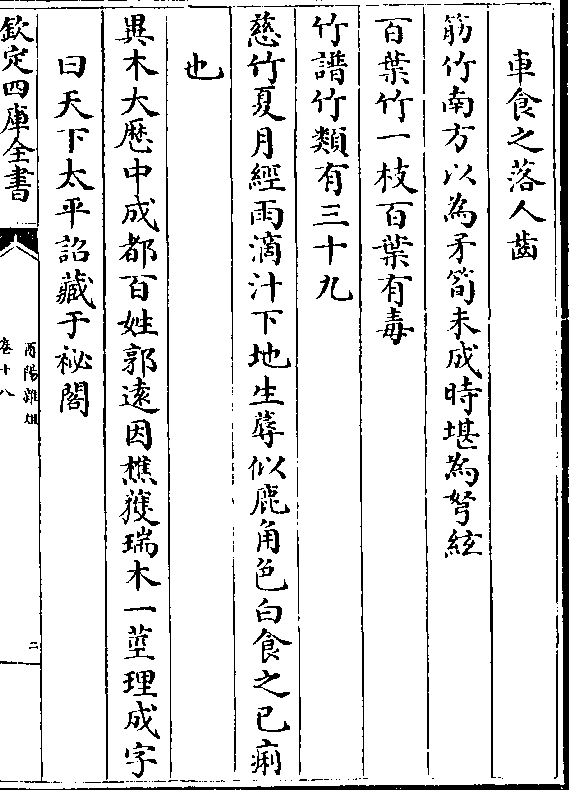 車食之落人齒
筋竹南方以為矛筍未成時堪為弩絃
百葉竹一枝百葉有毒
竹譜竹類有三十九
慈竹夏月經雨滴汁下地生蓐似鹿角色白食之已痢
也
異木大厯中成都百姓郭逺因樵獲瑞木一莖理成字
曰天下太平詔藏于祕閣
欽定四庫全書
酉陽雜俎
卷十八
二